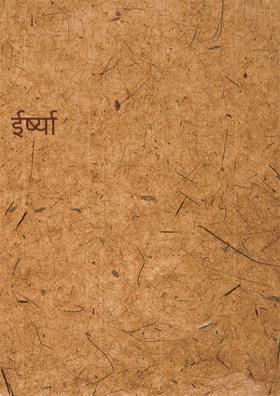 ईर्ष्या